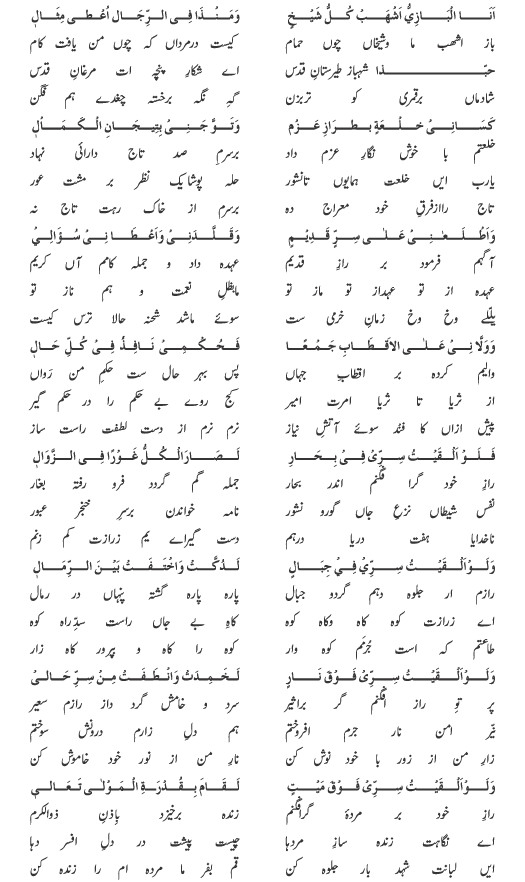 اَنَـا الْبَـازِيُّ اَشْهَـبُ كُـلُّ شَيْـخٍ وَمَـنْ ذَا فِـي الـرِّجَـالِ اُعْطٰـي مِثَـالٖ
باز اشھب ما و شیخاں چوں حمام کیست درمرداں کہ چوں من یافت کام
حبّـذا شہباز طیرستانِ قدس اے شکار پنجہ ات مرغانِ قدس
شادماں برقمری کو تربزن گہِ نگہ برخستہ چغدے ہم فگن
كَسَـانِـيْ خِـلْعَـةٍ بِـطَـرَازِ عَـزْمٍ وَتَوَّ جَنِـيْ بِتِيجَـانِ الْـكَمَـالٖ
خلعتم با خوش نگارِ عزم داد برسرم صد تاجِ دارائی نہاد
یارب ایں خلعت ہمایوں تانشور حلہ پوشا یک نظر بر مشت عور
تاج راازفرق خود معراج دہ برسرم از خاکِ رہت تاج نہ
وَاَطْلَـعَـنِـيْ عَـلٰـى سِـرٍّ قَـدِيْـمٍ وَقَـلَّدَنِـيْ وَاَعْـطَـا نِـيْ سُـؤَالِـيْ
آگہم فرمود بر رازِ قدیم عہدہ داد و جملہ کامم آں کریم
عہدہ از تو عہداز تو ماز تو مابظلِ نعمت و ہم ناز تو
یللے وخ وخ زمانِ خرمی ست سوئے ماشد شحنہ حالا ترس کیست
وَوَلَّا نِـيْ عَلَـى الْاَقْطَـابِ جَمْـعًـا فَـحُـكْمِـيْ نَـافِـذٌ فِـيْ كُـلِّ حَـالٖ
والیم کردہ بر اقطابِ جہاں پس بہر حال ست حکمِ من رواں
از ثریا تا ثریا امرت امیر کج روے بے حکم را در حکم گیر
پیش ازاں کا فتد سوئے آتش نیاز نرم نرم از دستِ لطفت راست ساز
فَـلَـوْ اَلْـقَيْـتُ سِـرِّيْ فِـيْ بِـحَـارٍ لَـصَـارَ الْـكُـلُّ غَـوْرًا فِـي الـزَّوَالٖ
رازِ خود گرا فگنم اندر بحار جملہ گم گردد فرو رفتہ بغار
نفس شیطاں نزعِ جاں گورو نشور نامہ خواندن برسرِ خنجر عبور
ناخدایا ہفت دریا درہم دست گیراے یم زرازت کم زنم
وَلَـوْ اَلْـقَـيْـتُ سِـرِّيْ فِـيْ جِـبَـالٍ لَـدُكَّـتْ وَاخْتَـفَـتْ بَيْنَ الـرِّمَـالٖ
رازم ار جلوہ دہم گردو جبال پارہ پارہ گشتہ پنہاں در رمال
اے زرازت کوہ کاہ وکاہ کوہ کاہِ بے جاں راست سدِّراہ کوہ
طاعتم کہ است جُرْمَم کوہ وار کوہ را کاہ و پرور کاہ زار
وَلَـوْ اَلْـقَيْـتُ سِـرِّيْ فَـوْقَ نَـارٍ لَخَـمِدَتْ وَانْطَفَـتْ مِـنْ سِـرِّ حَـالِـيْ
پر توِ راز افگنم گر براثیر سرد و خامش گرد داز رازم سعیر
نیّرِ امن نار جرم افروختم ہم دلِ زارم درونش سوختم
زارِ من از زور با خود نوش کن نارِ من از نورِ خود خاموش کن
وَلَـوْ اَلْـقَيْـتُ سِـرِّيْ فَـوْقَ مَيْـتٍ لَـقَـامَ بِـقُـدْرَةِ الْمَـوْلٰـى تَعَـالٖـى
رازِ خود بر مردۂ گرافگنم زندہ برخیزد بِاِذنِ ذوالکرم
اے نگاہت زندہ سازِ مردہا چیست پیشت در دلِ افسر دہا
ایں لبانت شہد بار جلوہ کن قم بفر ما مردہ ام را زندہ کن